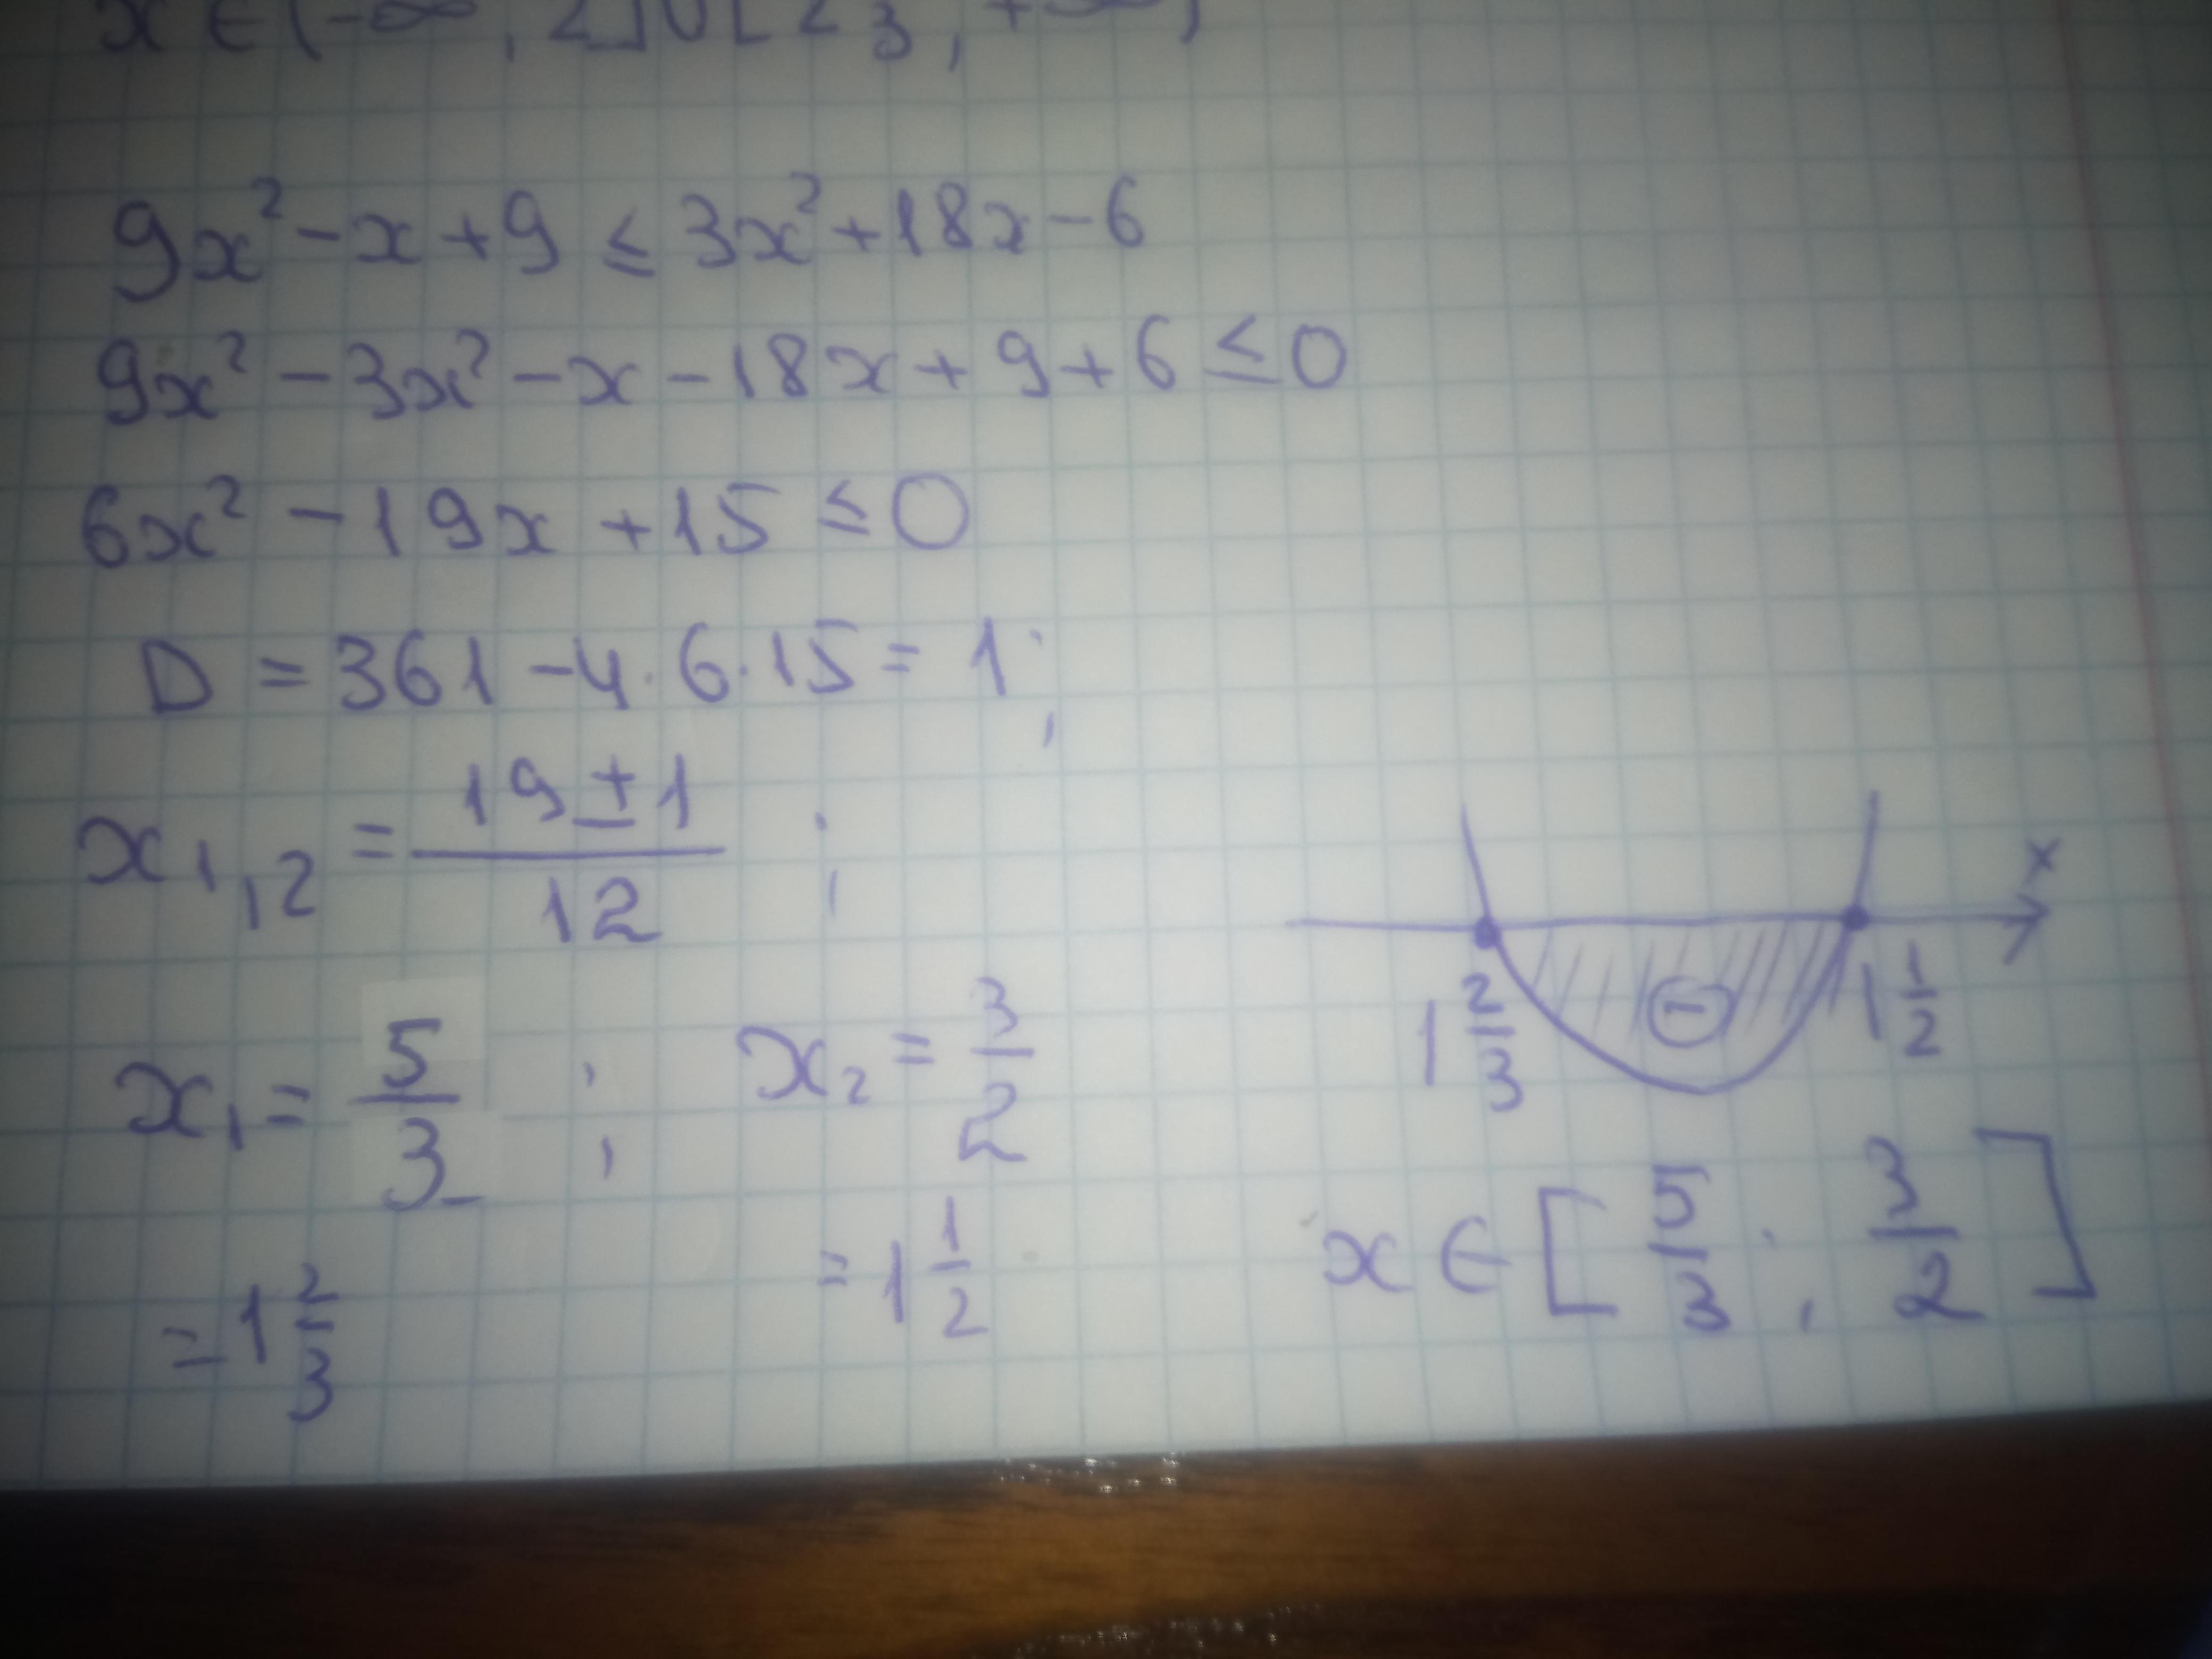 x ∈ (-∞, 2] ∪ [2 3, +∞)
9x² - x + 9 ≤ 3x² + 18x - 6
9x² - 3x² - x - 18x + 9 + 6 ≤ 0
6x² - 19x + 15 ≤ 0
D = 361 - 4 · 6 · 15 = 1;
x₁,₂ = (19 ± 1)/12 ;
x₁ = 5/3 ; x₂ = 3/2
= 1 2/3 = 1 1/2
x
1 2/3 ⊖ 1 1/2
x ∈ [5/3 ; 3/2]